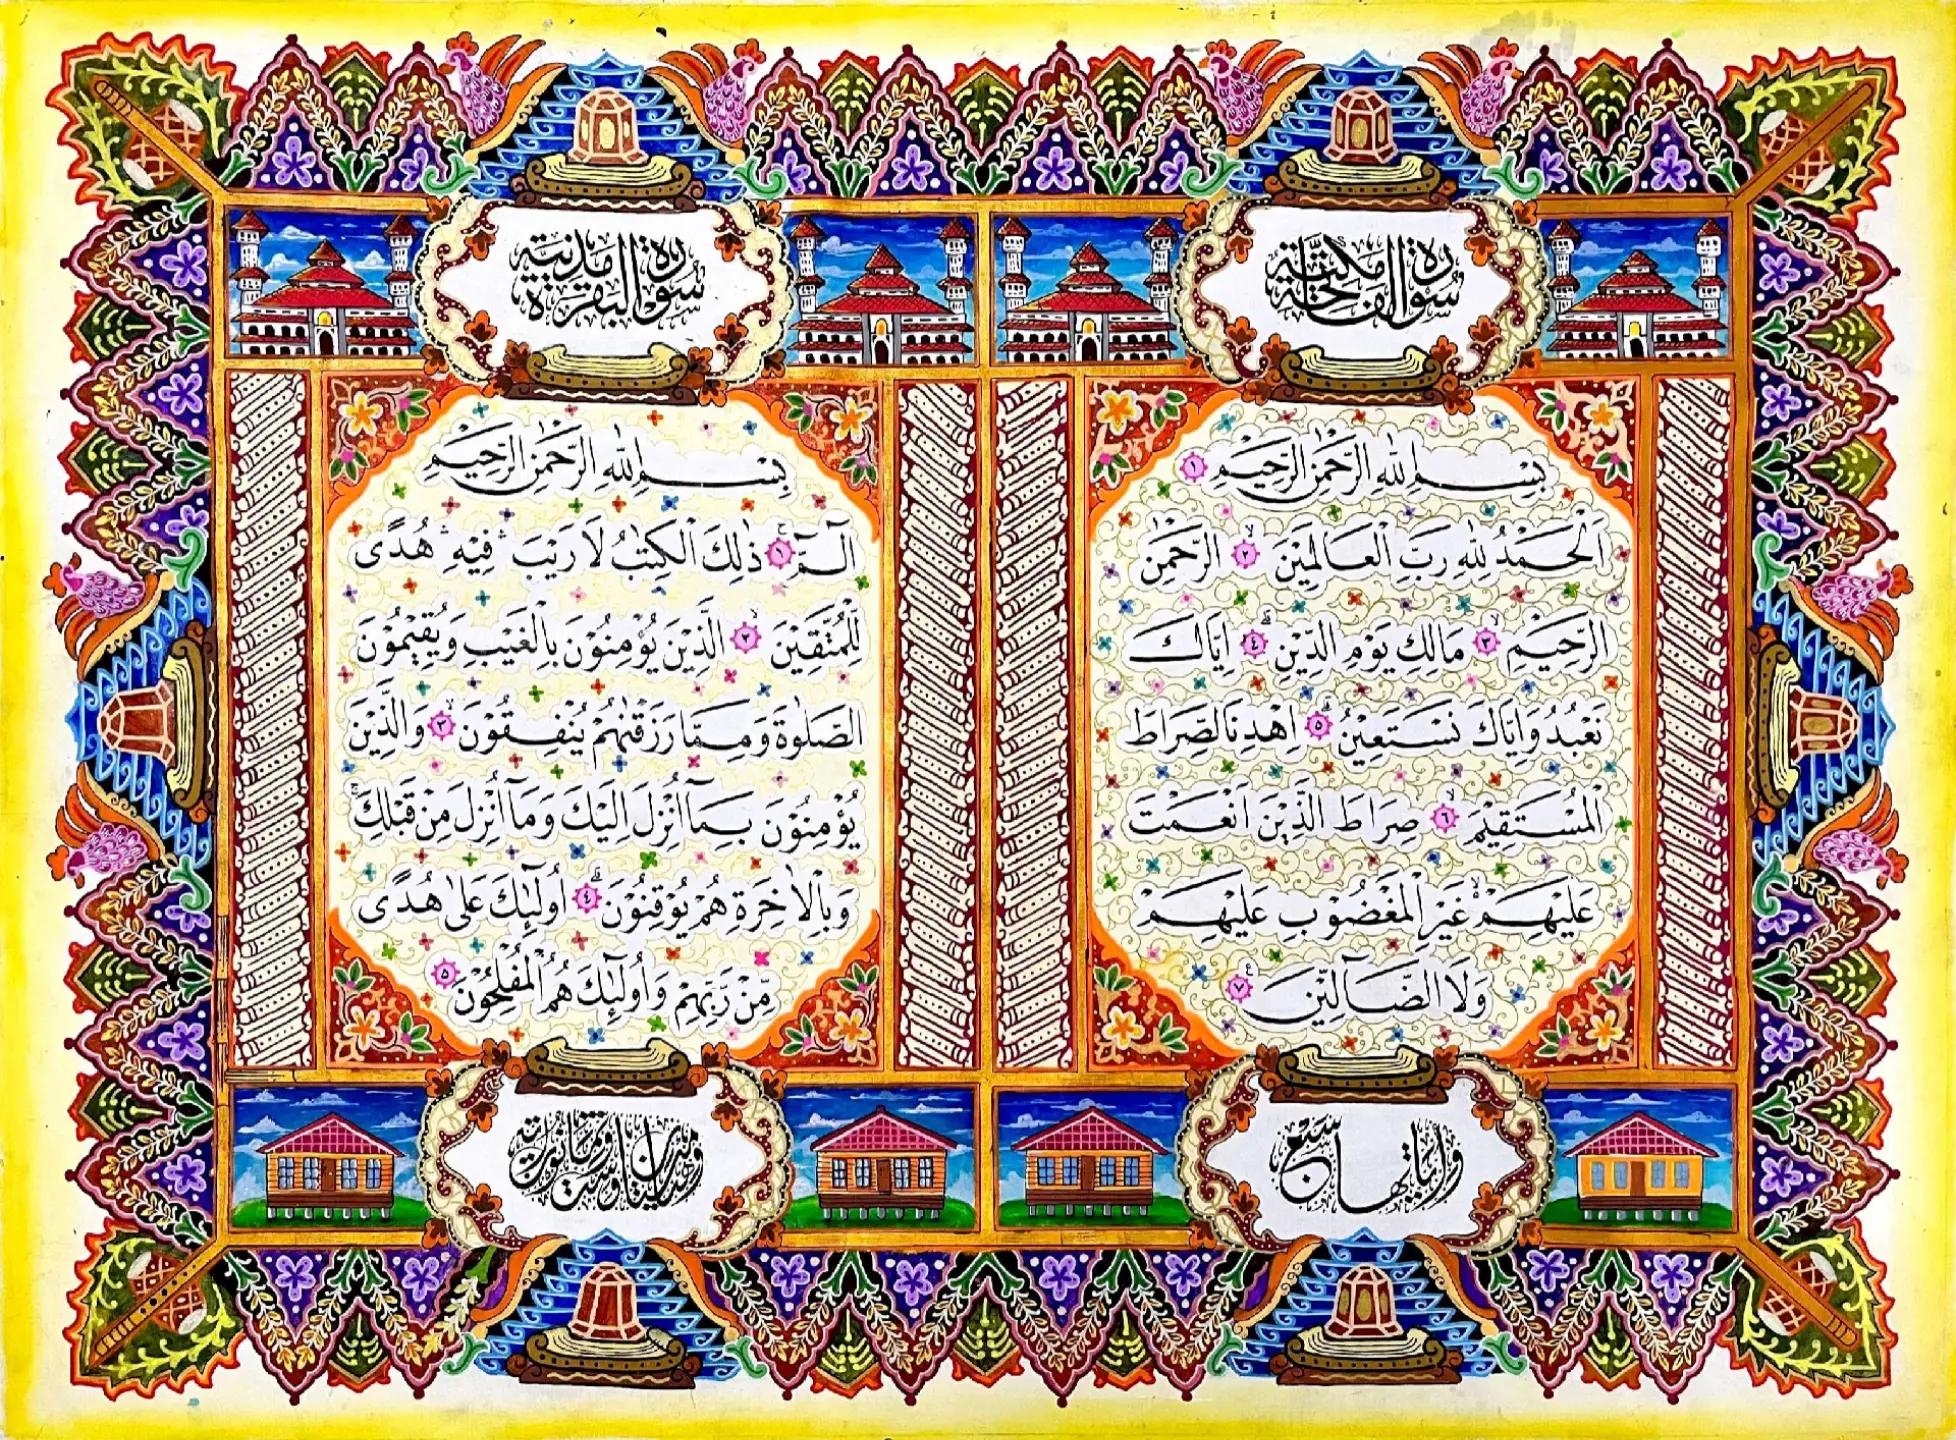 سُوْرَةُ الْفَاتِحَةِ مَكِّيَّة
بِسْمِ اللهِ الرَّحْمٰنِ الرَّحِيْمِ ١
اَلْحَمْدُ لِلّٰهِ رَبِّ الْعَالَمِيْنَ ٢ الرَّحْمٰنِ
الرَّحِيْمِ ٣ مَالِكِ يَوْمِ الدِّيْنِ ٤ اِيَّاكَ
نَعْبُدُ وَاِيَّاكَ نَسْتَعِيْنُ ٥ اِهْدِنَا الصِّرَاطَ
الْمُسْتَقِيْمَ ٦ صِرَاطَ الَّذِيْنَ اَنْعَمْتَ
عَلَيْهِمْ غَيْرِ الْمَغْضُوْبِ عَلَيْهِمْ
وَلَا الضَّآلِّيْنَ ٧
وأياتها سبع
سُوْرَةُ الْبَقَرَةِ مَدَنِيَّة
بِسْمِ اللهِ الرَّحْمٰنِ الرَّحِيْمِ
الٓمّٓ ١ ذٰلِكَ الْكِتٰبُ لَا رَيْبَ ۛ فِيْهِ ۛ هُدًى
لِلْمُتَّقِيْنَ ٢ الَّذِيْنَ يُؤْمِنُوْنَ بِالْغَيْبِ وَيُقِيْمُوْنَ
الصَّلٰوةَ وَمِمَّا رَزَقْنٰهُمْ يُنْفِقُوْنَ ٣ وَالَّذِيْنَ
يُؤْمِنُوْنَ بِمَآ اُنْزِلَ اِلَيْكَ وَمَآ اُنْزِلَ مِنْ قَبْلِكَ
وَبِالْاٰخِرَةِ هُمْ يُوْقِنُوْنَ ٤ اُولٰٓئِكَ عَلٰى هُدًى
مِّنْ رَّبِّهِمْ وَاُولٰٓئِكَ هُمُ الْمُفْلِحُوْنَ ٥